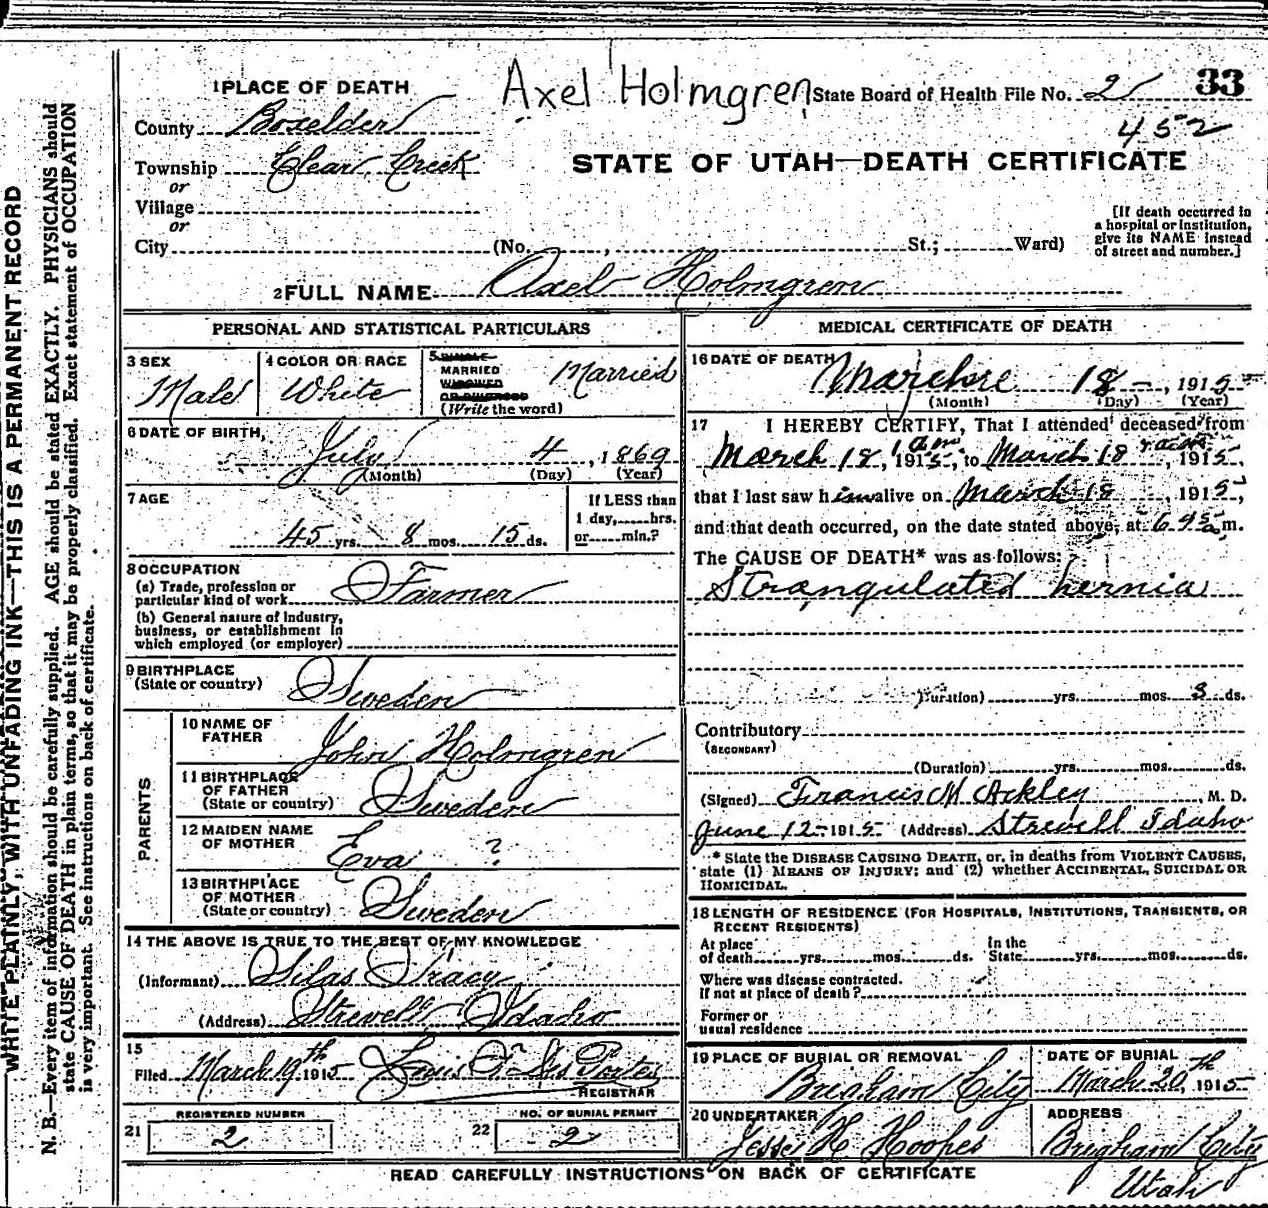 WRITE PLAINLY, WITH UNFADING INK—THIS IS A PERMANENT RECORD
N. B.—Every item of information should be carefully supplied. AGE should be stated EXACTLY. PHYSICIANS should
state CAUSE OF DEATH in plain terms, so that it may be properly classified. Exact statement of OCCUPATION
is very important. See instructions on back of certificate.
Axel Holmgren
State Board of Health File No. 2 33
452
1 PLACE OF DEATH
County Boxelder
Township Clear Creek
or
Village
or
City (No. , St.; Ward)
STATE OF UTAH—DEATH CERTIFICATE
[If death occurred in
a hospital or institution,
give its NAME instead
of street and number.]
2 FULL NAME Axel Holmgren
PERSONAL AND STATISTICAL PARTICULARS
3 SEX
Male
4 COLOR OR RACE
White
5 SINGLE
MARRIED
WIDOWED
OR DIVORCED
(Write the word)
Married
6 DATE OF BIRTH,
July 4, 1869
(Month) (Day) (Year)
7 AGE
45 yrs. 8 mos. 15 ds.
If LESS than
1 day, hrs.
or min.?
8 OCCUPATION
(a) Trade, profession or
particular kind of work Farmer
(b) General nature of Industry,
business, or establishment in
which employed (or employer)
9 BIRTHPLACE
(State or country)
Sweden
PARENTS
10 NAME OF
FATHER
John Holmgren
11 BIRTHPLACE
OF FATHER
(State or country)
Sweden
12 MAIDEN NAME
OF MOTHER
Eva ?
13 BIRTHPLACE
OF MOTHER
(State or country)
Sweden
14 THE ABOVE IS TRUE TO THE BEST OF MY KNOWLEDGE
(Informant) Silas Tracy
(Address) Strevell Idaho
15
Filed March 19th 1915
REGISTRAR
REGISTERED NUMBER
21 2
NO. OF BURIAL PERMIT
22 2
MEDICAL CERTIFICATE OF DEATH
16 DATE OF DEATH
18 , 1915
(Month) (Day) (Year)
17 I HEREBY CERTIFY, That I attended deceased from
March 18, 1 am 1915, to March 18 , 1915,
that I last saw him alive on March 18 , 1915,
and that death occurred, on the date stated above, at m.
The CAUSE OF DEATH* was as follows:
Strangulated hernia
(Duration) yrs. mos. 3 ds.
Contributory
(SECONDARY)
(Duration) yrs. mos. ds.
(Signed) Francis M Ackley , M. D.
June 12 1915 (Address) Strevell Idaho
* State the DISEASE CAUSING DEATH, or, in deaths from VIOLENT CAUSES,
state (1) MEANS OF INJURY; and (2) whether ACCIDENTAL, SUICIDAL OR
HOMICIDAL.
18 LENGTH OF RESIDENCE (FOR HOSPITALS, INSTITUTIONS, TRANSIENTS, OR
RECENT RESIDENTS)
At place
of death yrs. mos. ds.
In the
State yrs. mos. ds.
Where was disease contracted.
If not at place of death?
Former or
usual residence
19 PLACE OF BURIAL OR REMOVAL
Brigham City
DATE OF BURIAL
March 20th, 1915
20 UNDERTAKER
Jesse H Hoopes
ADDRESS
Brigham City
Utah
READ CAREFULLY INSTRUCTIONS ON BACK OF CERTIFICATE